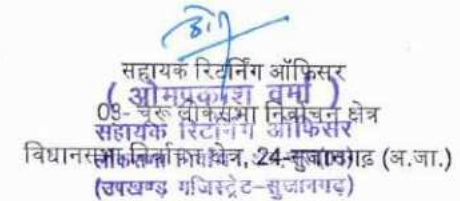 सहायक रिटर्निंग ऑफिसर
( ओमप्रकाश वर्मा )
03- चूरू लोकसभा निर्वाचन क्षेत्र
सहायक रिटर्निंग ऑफिसर
विधानसभा निर्वाचन क्षेत्र, 24-सुजानगढ़ (अ.जा.)
(उपखण्ड मजिस्ट्रेट-सुजानगढ़)